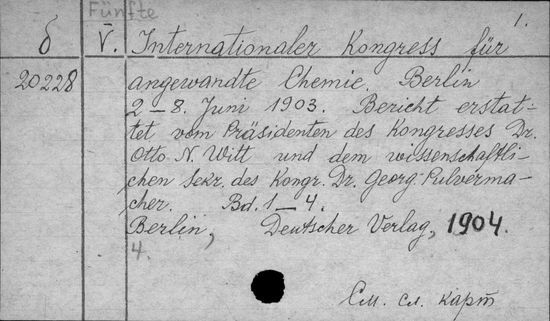 Fünfte
1.
б V. Internationaler Kongress für
20228 angewandte Chemie. Berlin
2-8. Juni 1903. Bericht erstat-
tet vom Präsidenten des Kongresses Dr.
Otto. N. Witt und dem wissenschaftli-
chen Sekr. des Kongr. Dr. Georg. Pulverma-
cher. Bd. 1-4.
Berlin, Deutscher Verlag, 1904.
4.
См. сл. карт